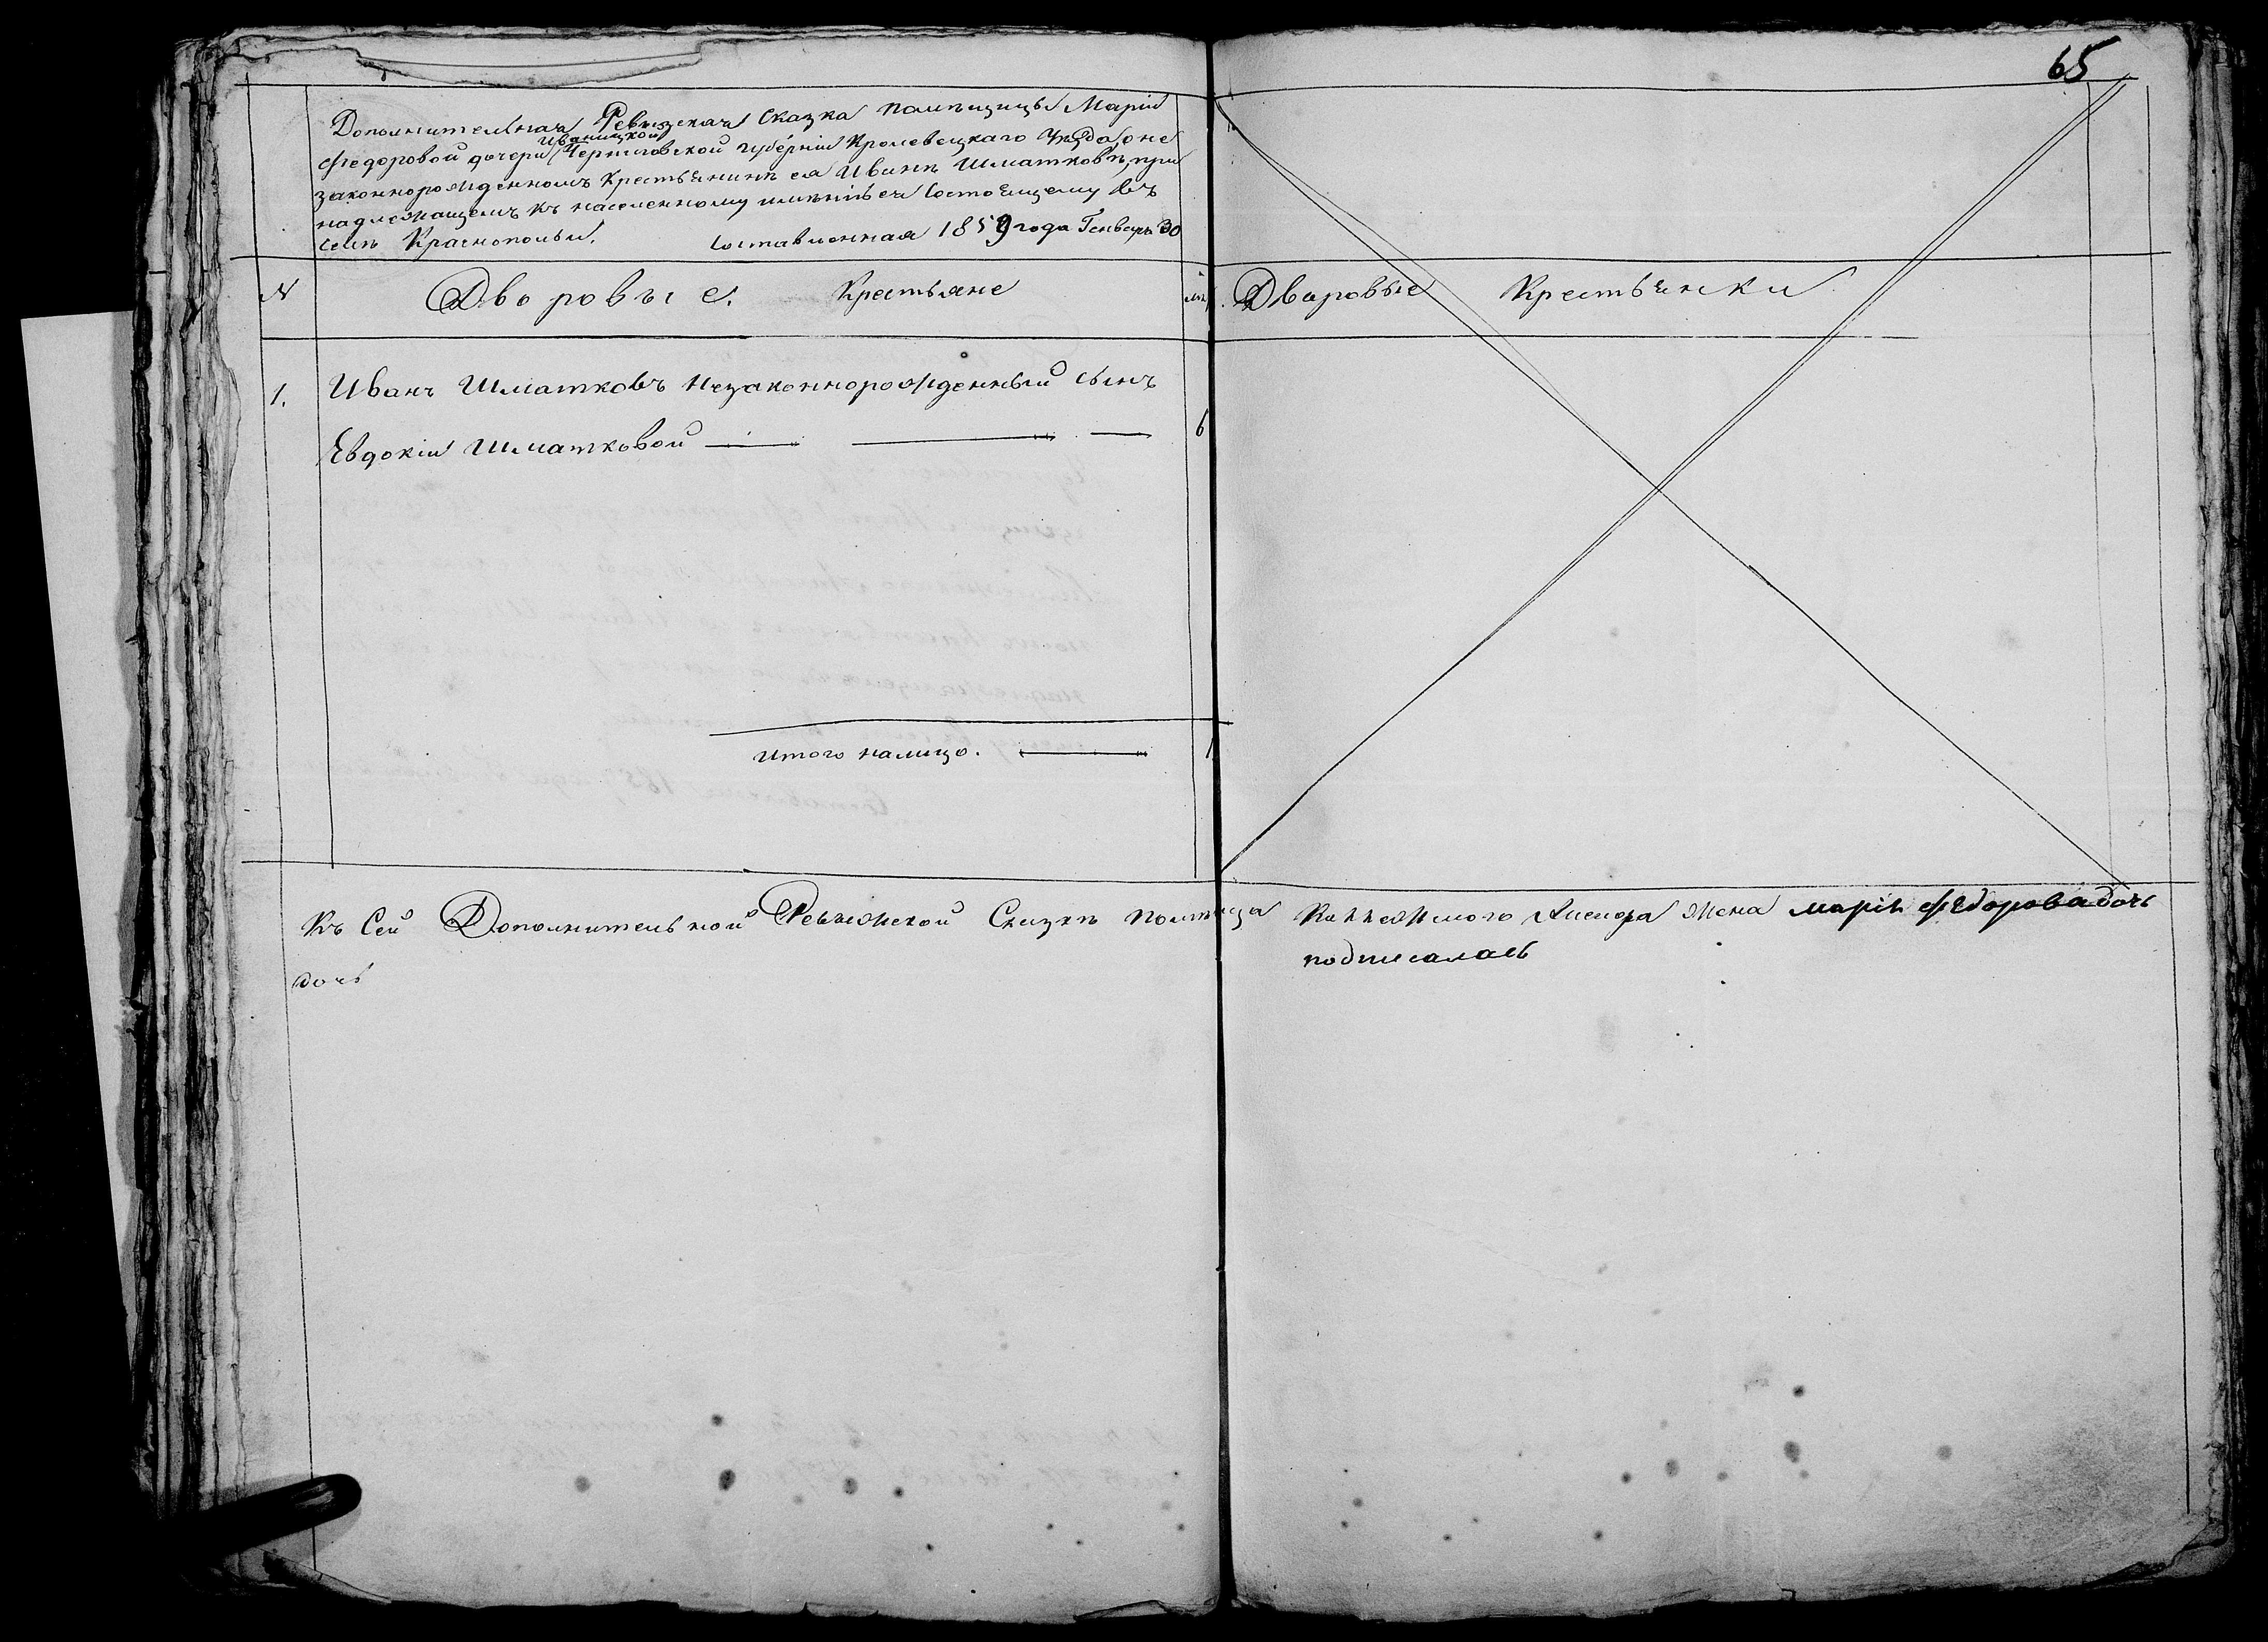 65
Дополнительная Ревизская Сказка помѣщицы Маріи
Иваницкой
Федоровой дочери Черниговской губерніи Кролевецкаго Уѣзда, о не
законнорожденномъ крестьянинѣ ея Иванѣ Шматковѣ, при
надлежащемъ къ населенному имѣнію ея состоящему въ
селѣ Краснопольи. Составленная 1859 года Генваря 30
N Дворовые. Крестьяне Дваровые Крестьянки
1. Иванъ Шматковъ незаконнорожденный сынъ
Евдокіи Шматковой 6
Итого налицо. 1
Къ Сей Дополнительной Ревижской Сказкѣ Колежского Асесора жена марія федорова дочь
дочь подписалась